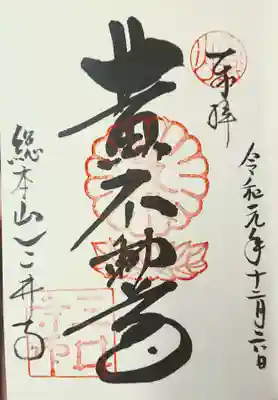 令和元年十二月日
奉拝
黄不動尊
総本山三井寺